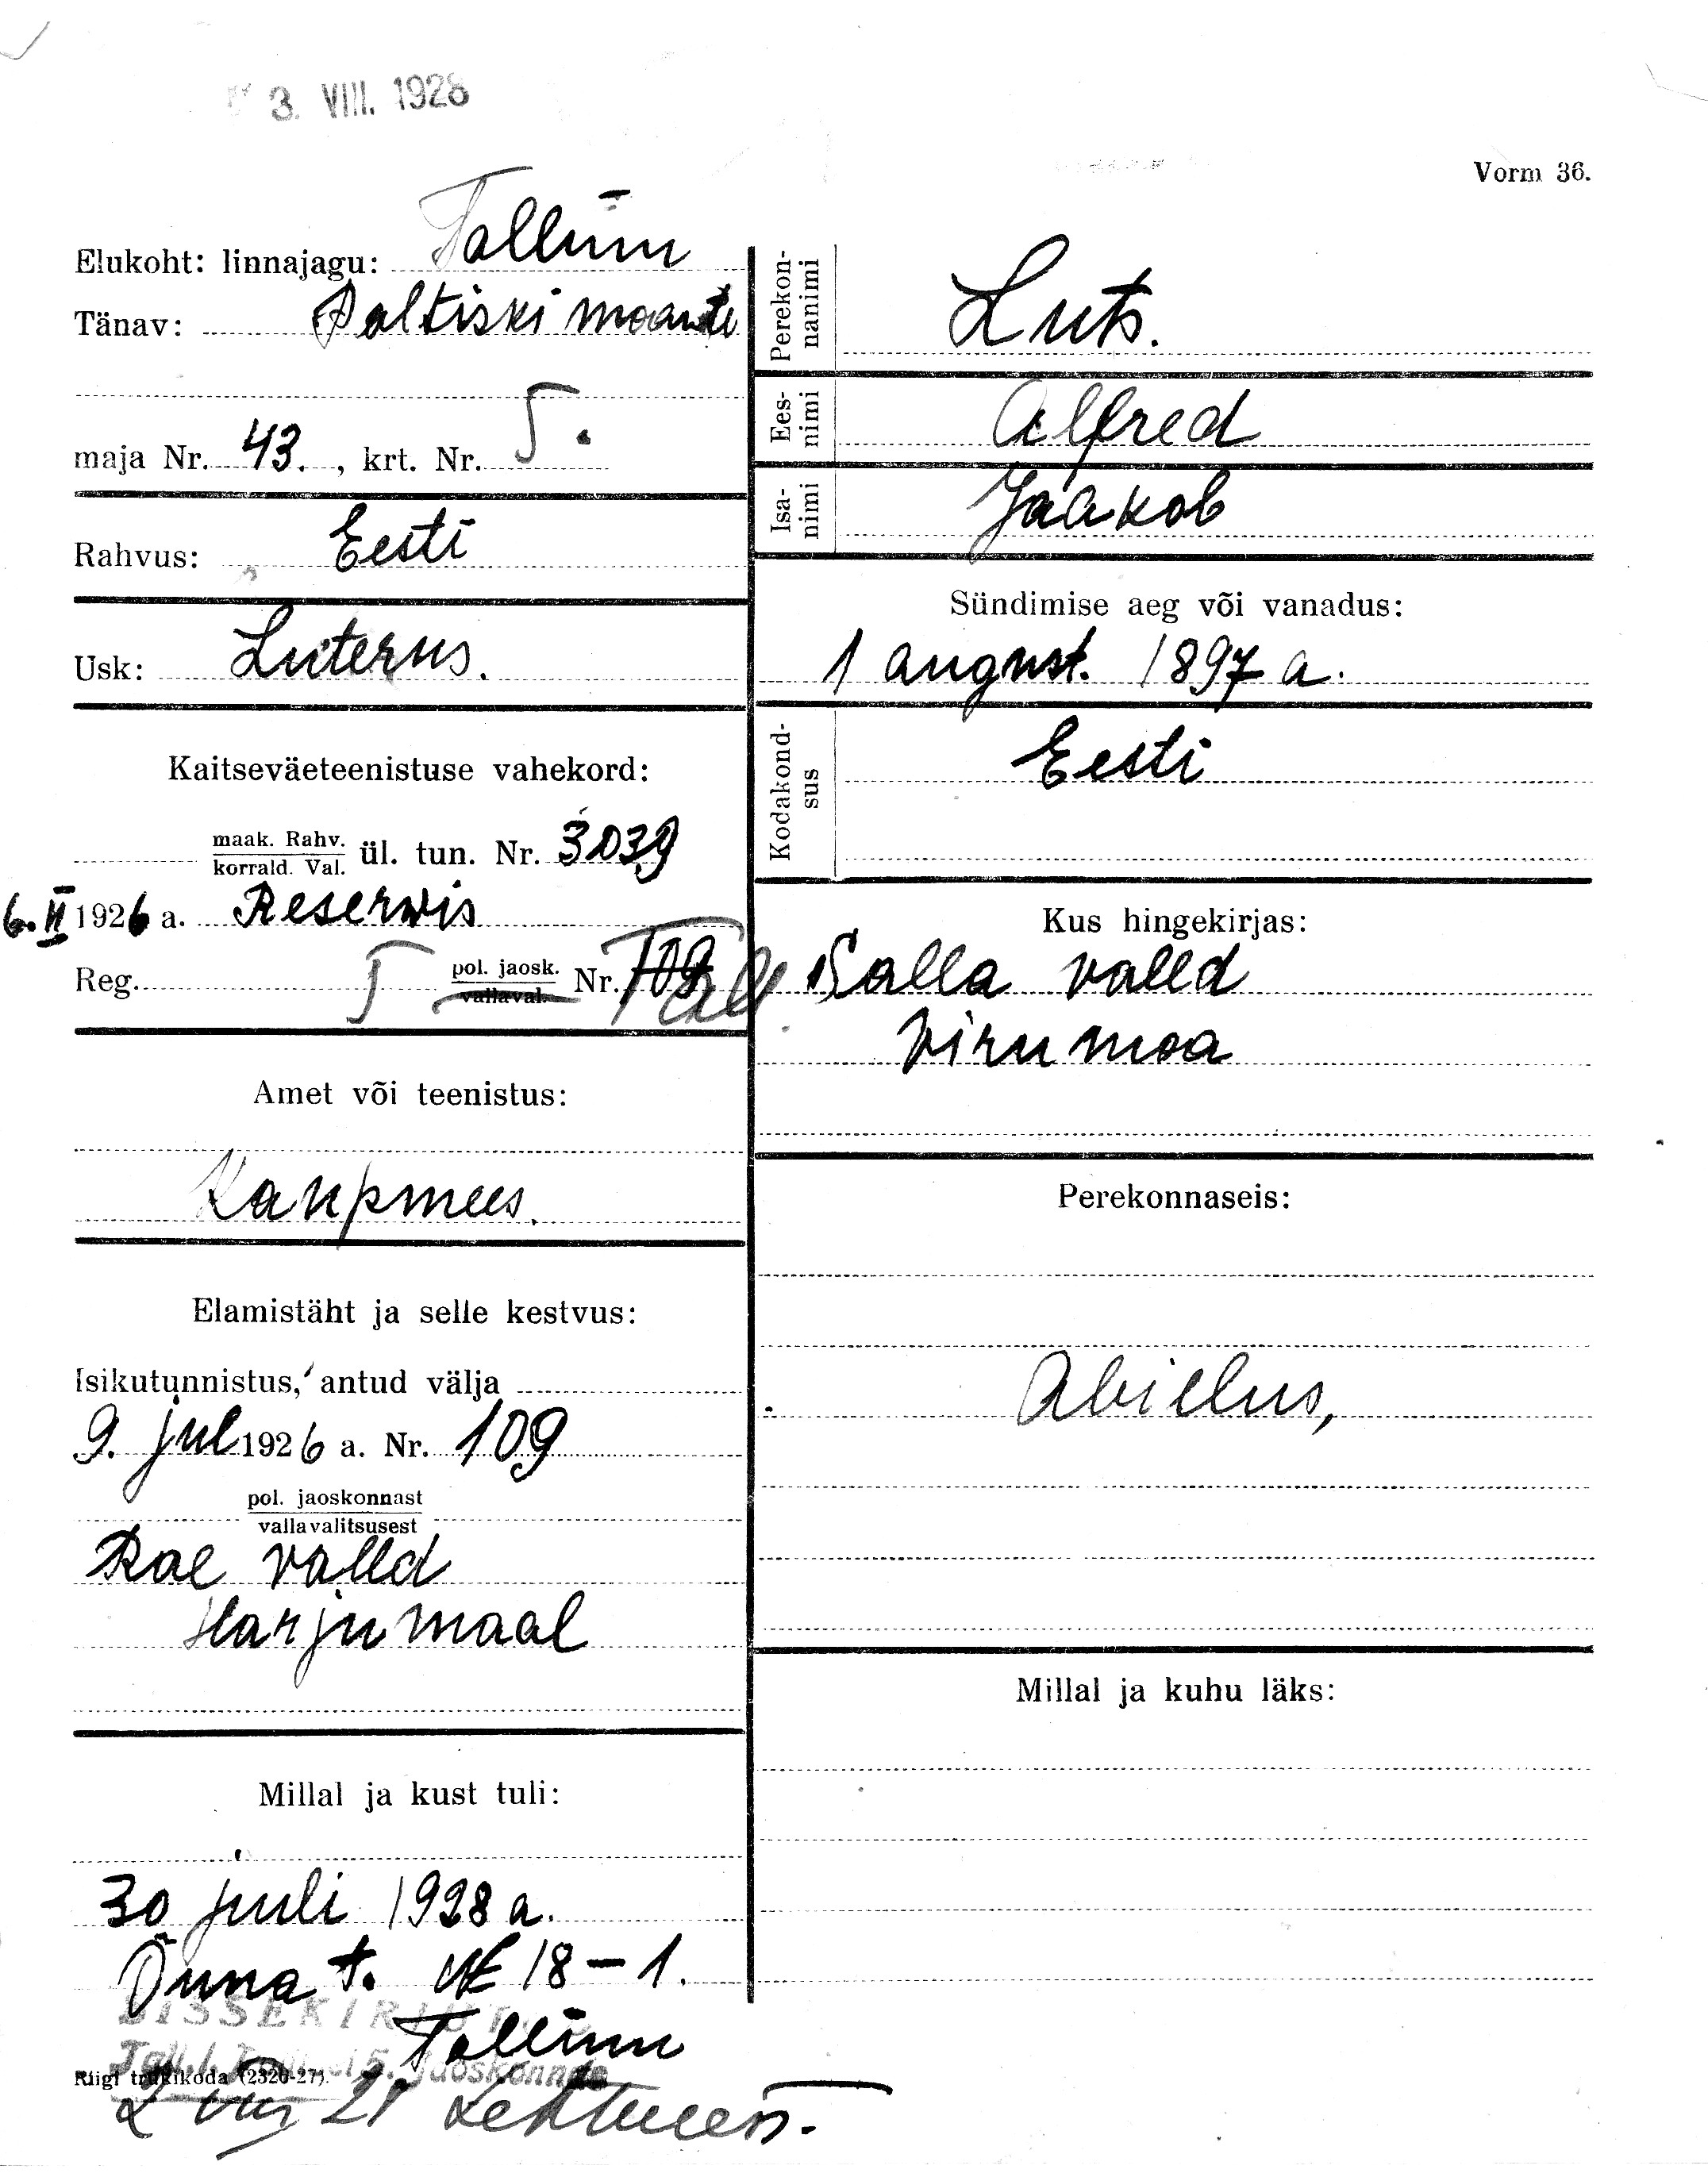 3. VIII. 1928
Vorm 36.
Elukoht: linnajagu: Tallinn
Tänav: Paltiski maante
maja Nr. 43., krt. Nr. 5.
Rahvus: Eesti
Usk: Luterus.
Kaitseväeteenistuse vahekord:
maak. Rahv.
korrald. Val. ül. tun. Nr. 3039
6. II 1926 a. Reserwis
Reg. pol. jaosk. Nr. 109 Tall
vallaval.
Amet või teenistus:
Kaupmees.
Elamistäht ja selle kestvus:
Isikutunnistus, antud välja
9. jul 1926 a. Nr. 109
pol. jaoskonnast
vallavalitsusest
Rae valld
Harjumaal
Millal ja kust tuli:
30 juuli 1928 a.
Õunna t. № 18-1.
Tallinn
SISSEKIRJUT
Tall. 5. jaoskonnas
Riigi trükikoda (2320-27).
Perekonnanimi
Luts.
Eesnimi
Alfred
Isanimi
Jaakob
Sündimise aeg või vanadus:
1 august. 1897 a.
Kodakondsus
Eesti
Kus hingekirjas:
Salla valld
Virumaa
Perekonnaseis:
Abielus,
Millal ja kuhu läks: